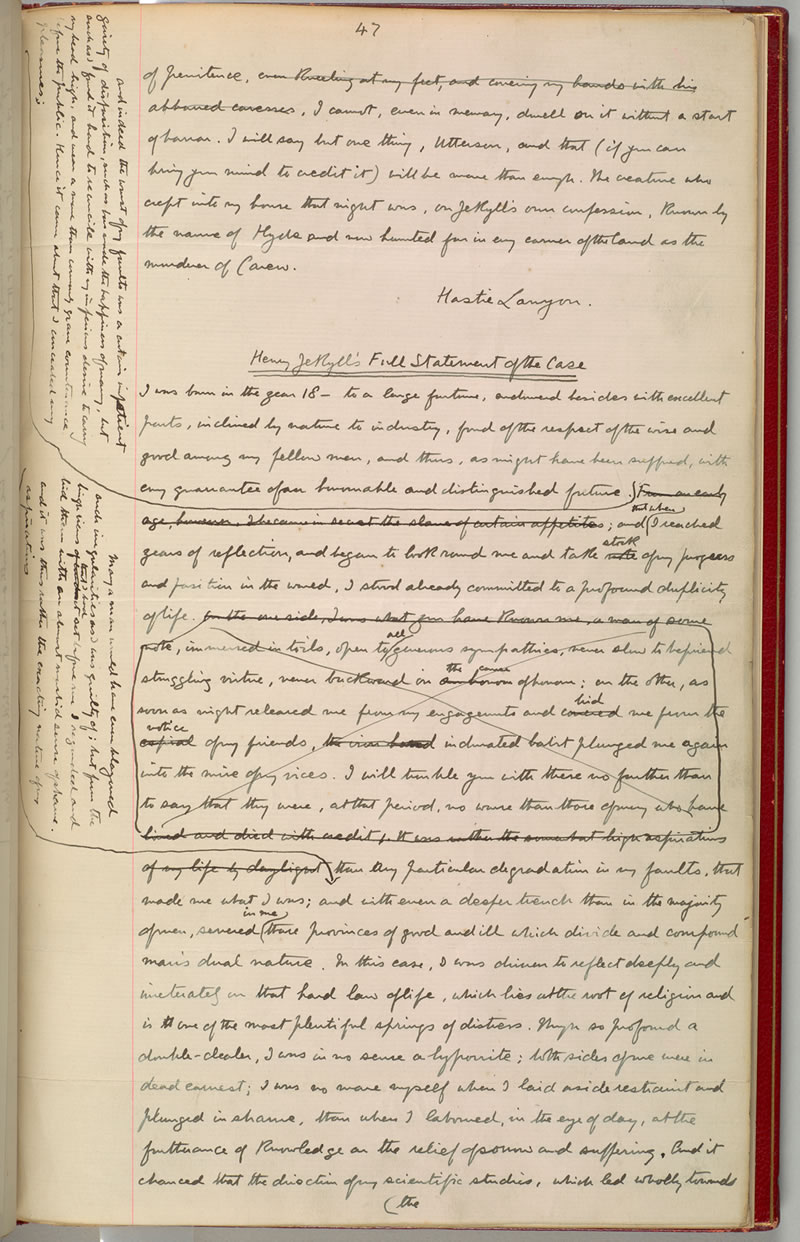 47
of penitence, even kneeling at my feet, and covering my hands with his
abhorred caresses, I cannot, even in memory, dwell on it without a start
of horror. I will say but one thing, Utterson, and that (if you can
bring your mind to credit it) will be more than enough. The creature who
crept into my house that night was, on Jekyll's own confession, known by
the name of Hyde and now hunted for in every corner of the land as the
murderer of Carew.
Hastie Lanyon.
Henry Jekyll's Full Statement of the Case
I was born in the year 18— to a large fortune, endowed besides with excellent
parts, inclined by nature to industry, fond of the respect of the wise and
good among my fellow men, and thus, as might have been supposed, with
every guarantee of an honourable and distinguished future. From an early
age, however, I became in secret the slave of certain appetites; and
that when
I reached
years of reflection, and began to look round me and take note of my progress
stock
and position in the world, I stood already committed to a profound duplicity
of life. On the one side, I was what you have known me, a man of some
note, immersed in toils, open to generous sympathies, never slow to befriend
all
struggling virtue, never backward in an honour of honour; on the other, as
the cause
soon as night released me from my engagements and covered me from the
hid
notice
of my friends, the iron hand indurated habit plunged me again
into the mire of my vices. I will trouble you with these no further than
to say that they were, at that period, no worse than those of many who have
lived and died with credit. It was rather the somewhat high aspirations
of my life by daylight than any particular degradation in my faults, that
made me what I was; and with even a deeper trench than in the majority
of men, severed those provinces of good and ill which divide and compound
in me
man's dual nature. In this case, I was driven to reflect deeply and
inveterately on that hard law of life, which lies at the root of religion and
is one of the most plentiful springs of distress. Though so profound a
double-dealer, I was in no sense a hypocrite; both sides of me were in
dead earnest; I was no more myself when I laid aside restraint and
plunged in shame, than when I laboured, in the eye of day, at the
furtherance of knowledge or the relief of sorrow and suffering. And it
chanced that the direction of my scientific studies, which led wholly towards
(the
and indeed the worst of my faults was a certain impatient
gaiety of disposition, such as has made the happiness of many, but
such as I found it hard to reconcile with my imperious desire to carry
my head high, and wear a more than commonly grave countenance
before the public. Hence it came about that I concealed my
pleasures;
Many a man would have even blazoned
such irregularities as I was guilty of; but from the
high views that I had set before me I regarded and
hid them with an almost morbid sense of shame.
and it was thus rather the exacting nature of my
aspirations